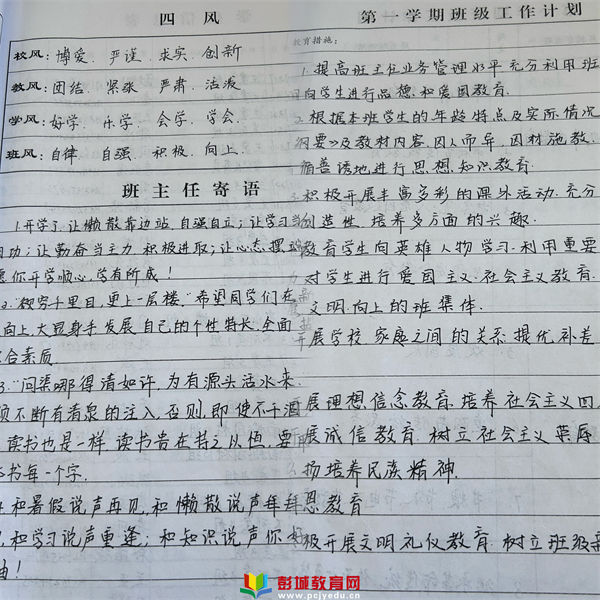 四风
校风: 博爱、严谨、求实、创新
教风: 团结、紧张、严肃、活泼
学风: 好学、乐学、会学、学会、
班风: 自律、自强、积极、向上、
班主任寄语
1.开学了,让懒散靠边站,自强自立;让学习当
功;让勤奋当主力,积极进取;让心态摆
愿你开学顺心,学有所成!
2."欲穷千里目,更上一层楼."希望同学们在
向上,大显身手发展自己的个性特长,全面
合素质.
3."问渠哪得清如许,为有源头活水来.
须不断有清泉的注入,否则,即使不干涸
读书也是一样,读书贵在持之以恒,要
书每一个字.
和暑假说声再见,和懒散说声拜拜
和学习说声重逢;和知识说声你好
油!
第一学期班级工作计划
教育措施:
1.提高班主任业务管理水平,充分利用班
向学生进行品德和爱国教育.
2.根据本班学生的年龄特点及实际情况
纲要》及教材内容,因人而异,因材施教.
循善诱地进行思想、知识教育.
积极开展丰富多彩的课外活动.充分
创造性,培养多方面的兴趣.
教育学生向英雄人物学习.利用重要
对学生进行爱国主义、社会主义教育.
文明、向上的班集体.
开展学校、家庭之间的关系.提优、补差
展理想、信念教育.培养社会主义四
展诚信教育.树立社会主义荣辱
扬培养民族精神.
恩教育
极开展文明礼仪教育.树立班级
彭城教育网
www.pcjyedu.cn